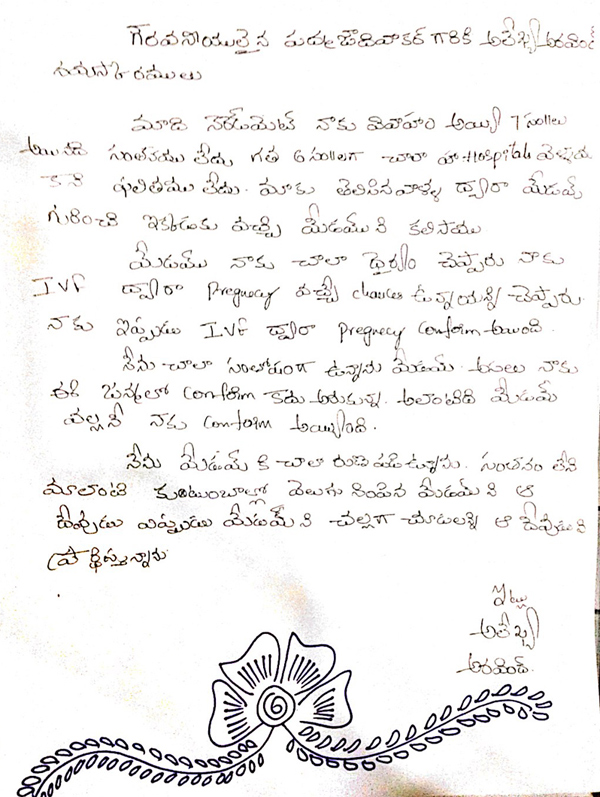 గౌరవనీయులైన పద్మజాదివాకర్ గారికి అలేఖ్య అరవింద్
నమస్కారములు
మాది నాకు వివాహం అయ్యి 7 సం||లు
అయినది సంతానము లేదు గత 6 సం||లుగా చాలా Hospitals వెళ్ళాము
కాని ఫలితము లేదు. మాకు తెలిసినవాళ్ళ ద్వారా మేడమ్
గురించి ఇక్కడకు వచ్చి మేడముని కలిసాము
మేడము నాకు చాలా ధైర్యం చెప్పారు నాకు
IVF ద్వారా Pregnecy వచ్చే chances ఉన్నాయన్ని చెప్పారు.
నాకు ఇప్పుడు IVF ద్వారా pregnecy Conform అయింది.
నేను చాలా సంతోషంగా ఉన్నాను మేడమ్. అసలు నాకు
ఈ జన్మలో Conform కాదు అనుకున్నా. అలాంటిది మేడమ్
వల్లనే నాకు Conform అయ్యింది.
నేను మేడమ్ కి చాలా రుణపడి ఉన్నాను. సంతానం లేని
మాలాంటి కుటుంబాల్లో వెలుగు నింపిన మేడమ్ ని ఆ
దేవుడు ఎప్పుడు మేడమ్ ని చల్లగా చూడాలన్ని ఆ దేవుడిని
ప్రార్థిస్తున్నాను
ఇట్లు
అలేఖ్య
అరవింద్.